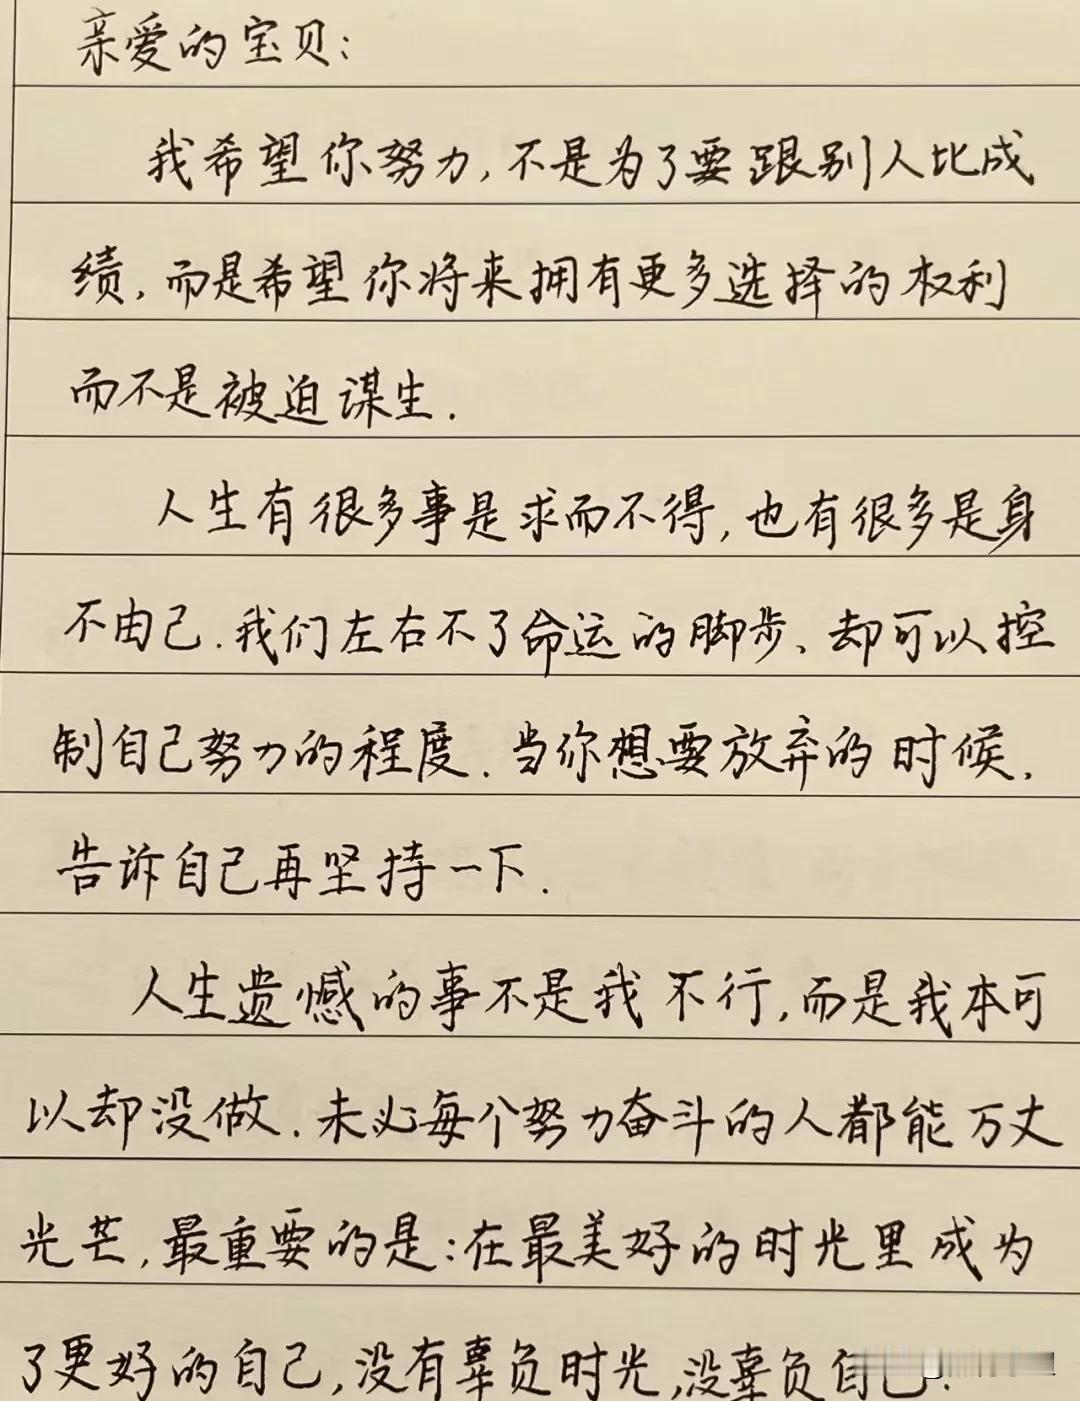 亲爱的宝贝:
我希望你努力,不是为了要跟别人比成
绩,而是希望你将来拥有更多选择的权利
而不是被迫谋生.
人生有很多事是求而不得,也有很多是身
不由己.我们左右不了命运的脚步、却可以控
制自己努力的程度.当你想要放弃的时候,
告诉自己再坚持一下.
人生遗憾的事不是我不行,而是我本可
以却没做.未必每个努力奋斗的人都能万丈
光芒,最重要的是:在最美好的时光里成为
了更好的自己,没有辜负时光,没辜负自己.